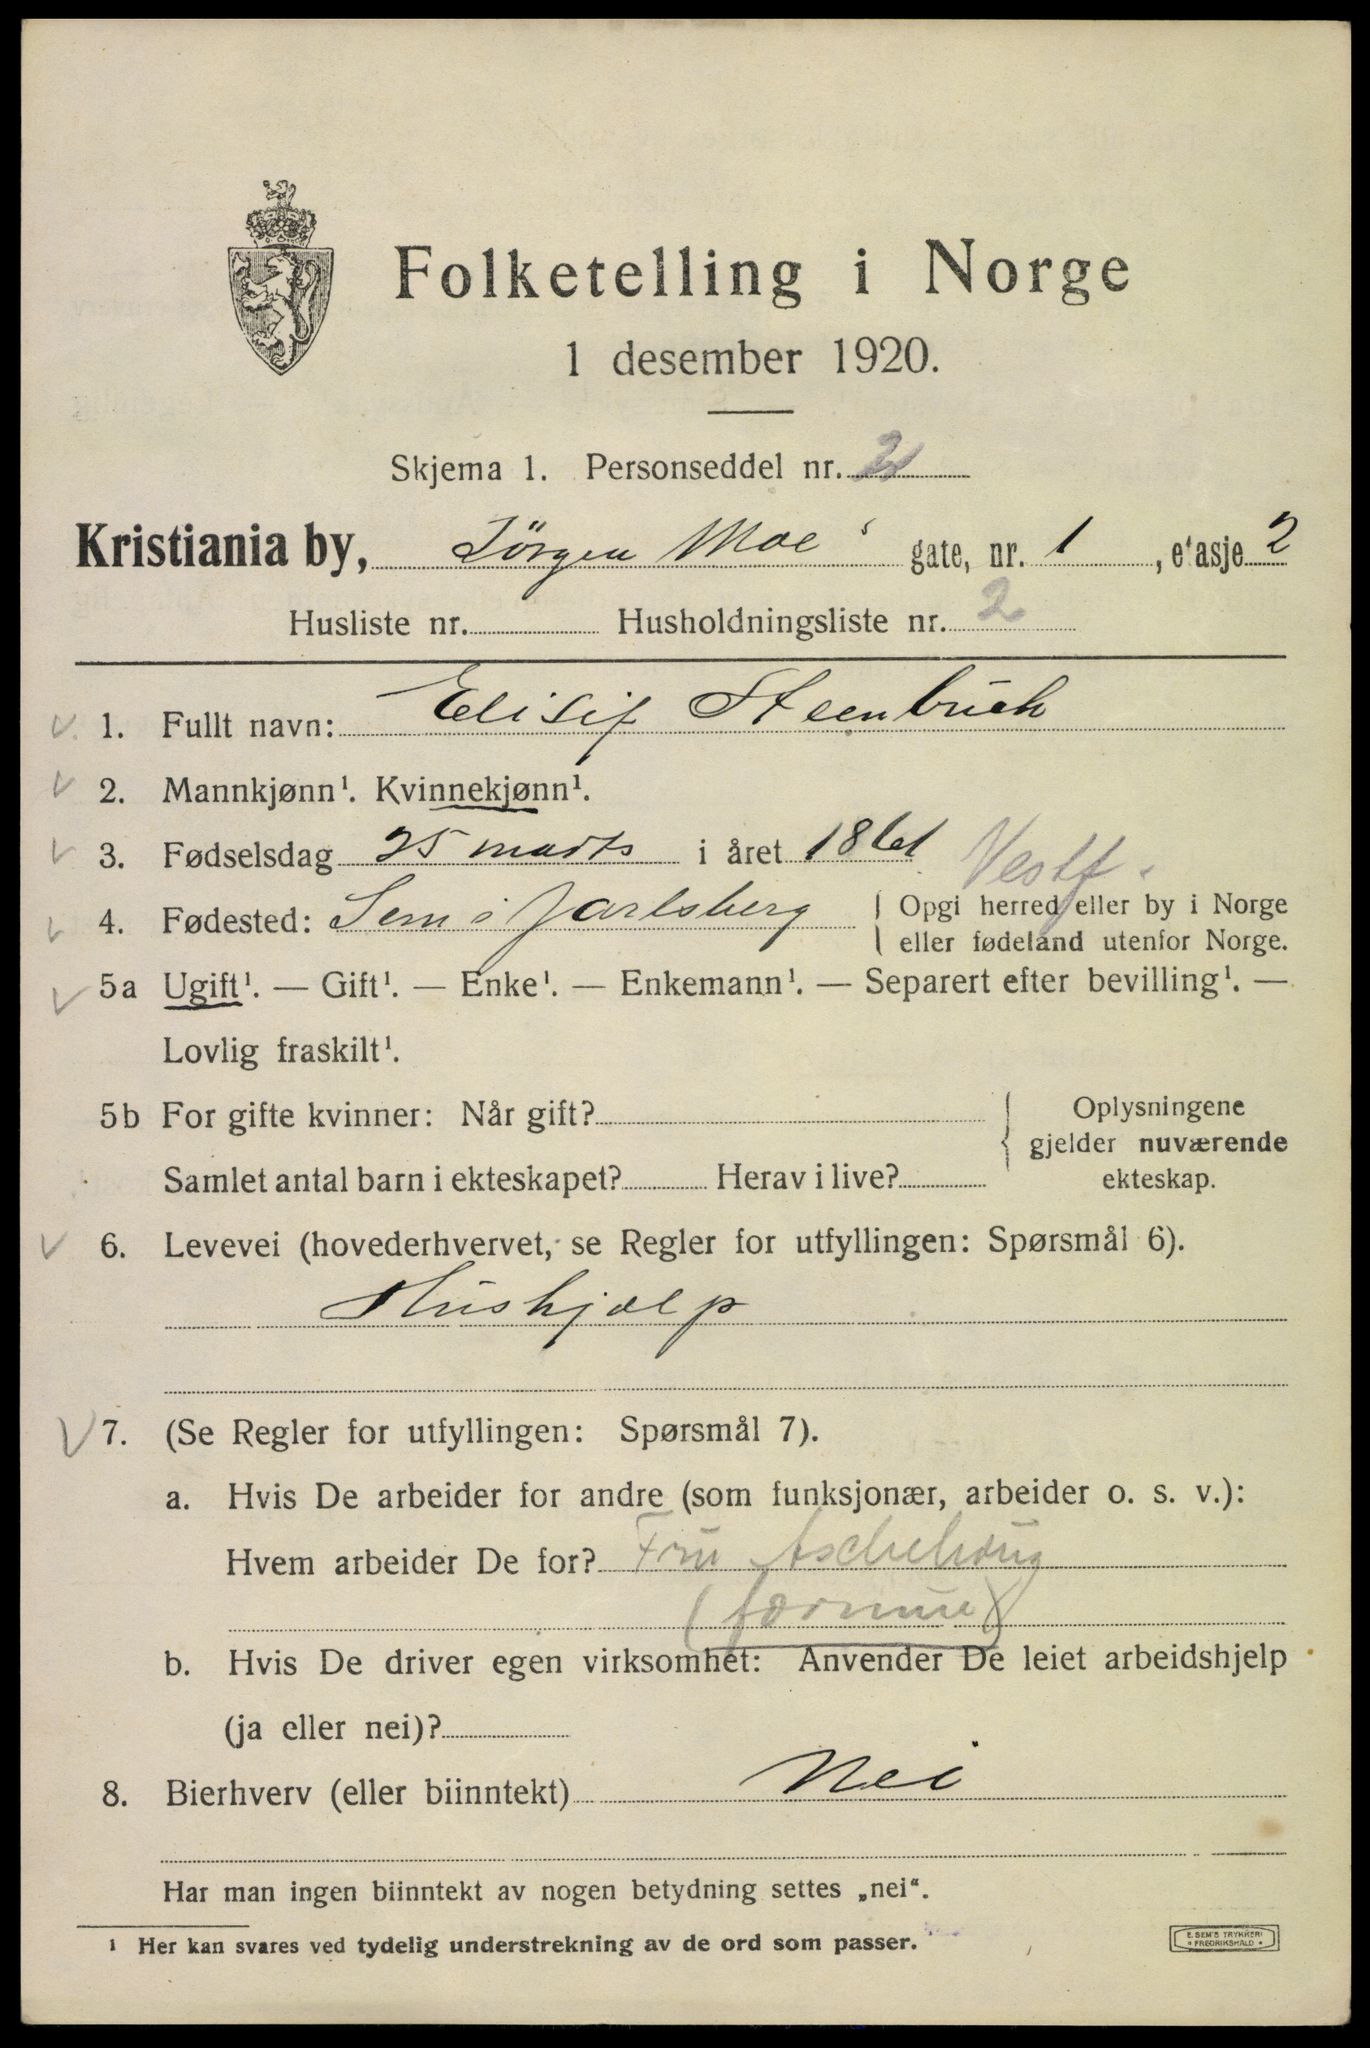 Folketelling i Norge
1 desember 1920.
Skjema 1. Personseddel nr. 2
Kristiania by, Jörgen Moe's gate, nr. 1, etasje 2
Husliste nr. Husholdningsliste nr. 2
1. Fullt navn: Elisif Steenbuch
2. Mannkjønn¹. Kvinnekjønn¹.
3. Fødselsdag 25 marts i året 1861
Vestf.
4. Fødested: Sem i Jarlsberg { Opgi herred eller by i Norge
eller fødeland utenfor Norge.
5a Ugift¹. — Gift¹. — Enke¹. — Enkemann¹. — Separert efter bevilling¹. —
Lovlig fraskilt¹.
5b For gifte kvinner: Når gift? { Oplysningene
gjelder nuværende
Samlet antal barn i ekteskapet? Herav i live? ekteskap.
6. Levevei (hovederhvervet, se Regler for utfyllingen: Spørsmål 6).
Hushjælp
7. (Se Regler for utfyllingen: Spørsmål 7).
a. Hvis De arbeider for andre (som funksjonær, arbeider o. s. v.):
Hvem arbeider De for? Fru Aschehoug
(formue)
b. Hvis De driver egen virksomhet: Anvender De leiet arbeidshjelp
(ja eller nei)?
8. Bierhverv (eller biinntekt) Nei
Har man ingen biinntekt av nogen betydning settes „nei“.
¹ Her kan svares ved tydelig understrekning av de ord som passer.
E. SEM'S TRYKKERI
FREDRIKSHALD